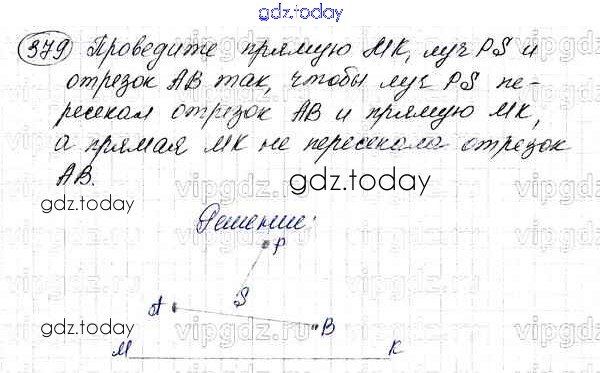 gdz.today
379 Проведите прямую МК, луч PS и
отрезок АВ так, чтобы луч PS пе-
ресекал отрезок АВ и прямую МК,
а прямая МК не пересекала отрезок
АВ.
gdz.today
gdz.today
Решение:
P
S
A
B
M
K
gdz.today
gdz.today
vipgdz.ru